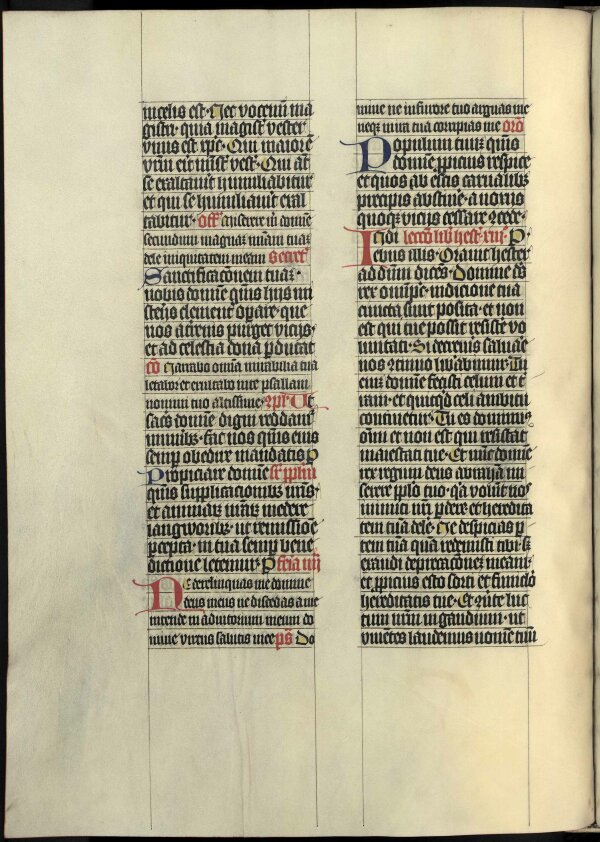 in celis est · Nec vocemini ma
gistri · quia magist̄ vester
vnus est xp̄c · Qui maiorē
vr̄m erit minist̄ vest̄ · Qui aūt
se exaltauit humiliabitur
et qui se humiliauit exal
tabitur · Off̄ Miserere m̄ domine
secundum magnaꝫ miām tuaꝫ
dele iniquitatem meam Secret̄
Sanctificacōnem tuaꝫ ·
nobis domine q̄ms hijs mi
sterijs clement̄ opare · que
nos a t̄renis purget vicijs ·
et ad celestia dona p̄ducat
cō Narrabo omīa mirabilia tua
letabor et exultabo in te psallam
nomini tuo altissime · Cōpl̄ Ut
sacͥs domine digni reddam̄
munībꝫ · fac nos q̄ms tuis
semp̄ obedire mandatis P
Propiciare domine sr̄ pp̄lm
q̄ms supplicacionibꝫ nr̄is ·
et animaꝫ nr̄aꝫ medere
langworibꝫ · ut remissiōe
p̄cepta · in tua semp̄ bene
dictione letemur · P feria iiij
Ne derelinquas me domine
deus meus ne discedas a me
intende in adiutorium meum do
mine virtus salutis mee p̄s Do
mine ne in furore tuo arguas me
neqꝫ in ira tua corripias me orō
Populum tuuꝫ q̄ms
domine ppicius respice
et quos ab escis carnalibꝫ
precipis abstinere · a noxijs
quoqꝫ vicijs cessare ꝯcede ·
lcc̄o lib̄ hest̄ · xiij · P ·
In diebus illis · Orauit hester
ad dn̄m dicēs · Domine dē
rex om̄ips · in dicione tua
cuncta sunt posita · et non
est qui tue possit resist̄e vo
luntati · Si decreuis saluare
nos ꝯtinuo libabimur · Tu
em̄ domine fecisti celum et t̄
ram · et quicqd celi ambitu
continetur · Tu es dominus
om̄i et non est qui resistat
maiestati tue · Et nūc domīe
rex regum deus abraham mi
serere pp̄lo tuo · qͣ volūt nos
inimici nr̄i p̄dere et heredita
tem tuā dele · Ne despicias p̄
tem tuā quā redemisti tibi · s̄
exaudi deprecacōneꝫ meam ·
et ppicius esto sorti et funiclo
hereditatis tue · Et ꝯuerte luc
tum nr̄m in gaudium · ut
viuētes laudemus nomē tuū